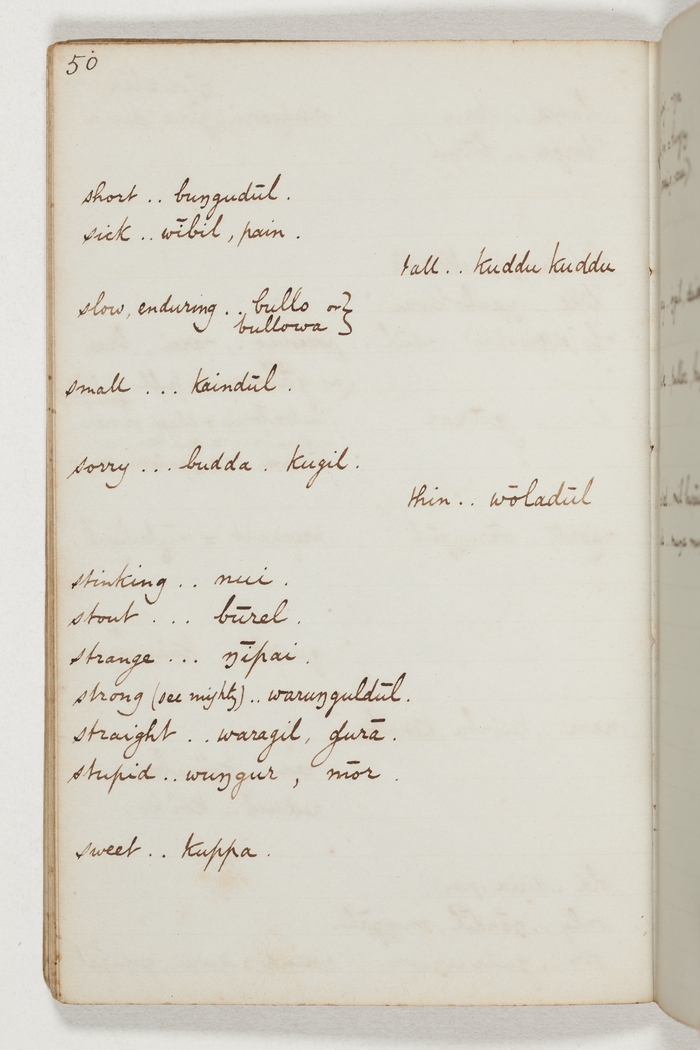 50
short .. buŋgudūl.
sick .. wībil, pain.
tall .. kuddu kuddu
slow, enduring .. bullo or }
bullowa }
small ... kaindūl.
sorry ... budda. kugil.
thin .. wōladūl
stinking .. nui.
stout ... būrel.
strange ... ŋīpai.
strong (see mighty) .. waruŋguldūl.
straight .. waragil, gurā.
stupid .. wuŋgur, mōr.
sweet .. kuppa.